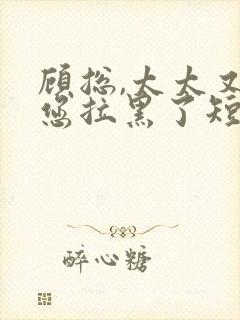 顾总,太太又
您拉黑了短
醉心糖